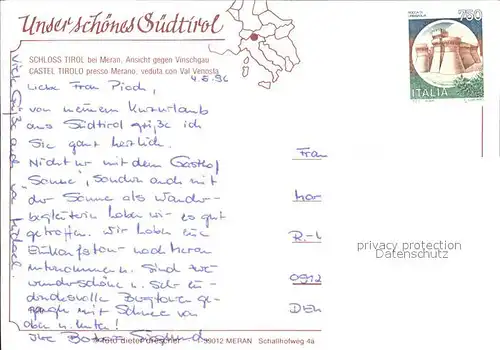 Unser schönes Südtirol
SCHLOSS TIROL bei Meran, Ansicht gegen Vinschgau
CASTEL TIROLO presso Merano, veduta con Val Venosta
750
ITALIA
4.5.96
Liebe Frau
von meinem Kurzurlaub
aus Südtirol grüße ich
Sie ganz herzlich.
Nicht nur mit dem Gasthof
"Sonne", sondern auch mit
der Sonne als Wander-
begleiterin haben wir es gut
getroffen. Wir haben
Einkaufs nach Meran
unternommen u. sind zwei
wunderschöne u. sehr ein-
drucksvolle Bergtouren ge-
mit Schnee von
oben u. unten!
Ihre
Viele Grüße auch von
Frau
R.-
0912
DEU
privacy protection
Datenschutz
foto dieter drescher I-39012 MERAN Schallhofweg 4a